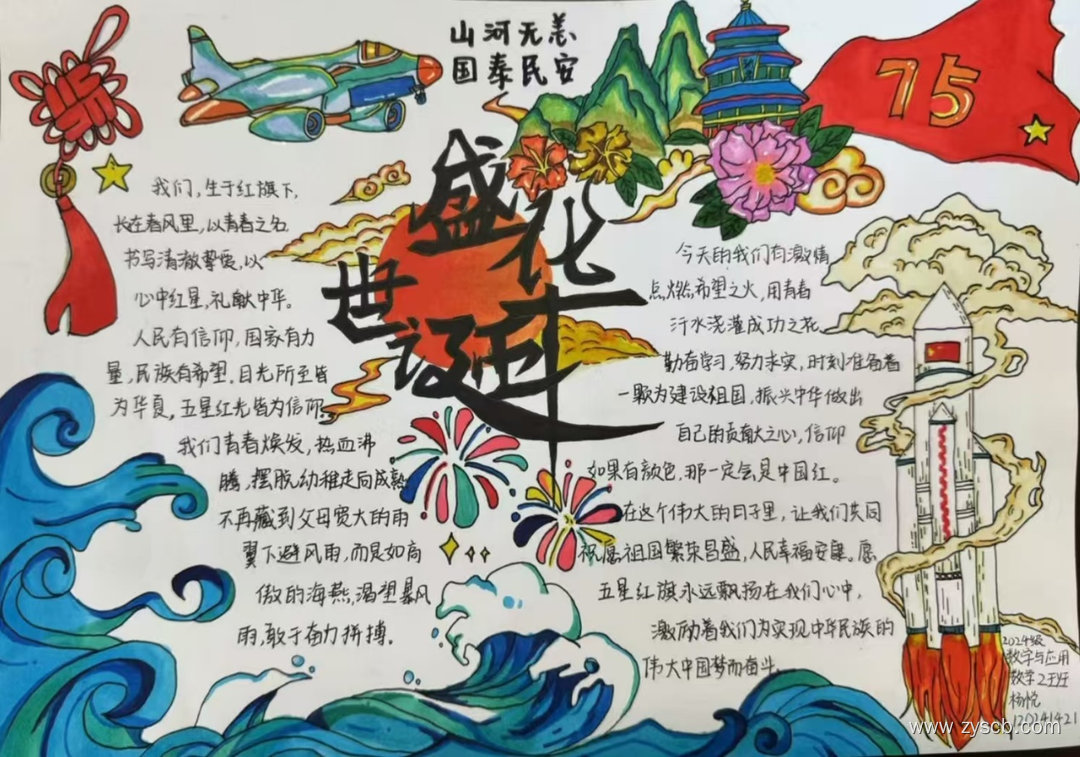 山河无恙
国泰民安
75
盛世华诞
我们,生于红旗下,
长在春风里,以青春之名
书写清澈挚爱,以
心中红星,礼献中华。
人民有信仰,国家有力
量,民族有希望。目光所至皆
为华夏,五星红光皆为信仰。
我们青春焕发,热血沸
腾,摆脱幼稚走向成熟
不再藏到父母宽大的雨
翼下避风雨,而是如高
傲的海燕,渴望暴风
雨,敢于奋力拼搏。
今天的我们有激情
点燃希望之火,用青春
汗水浇灌成功之花
勤奋学习,努力求实,时刻准备着
一颗为建设祖国,振兴中华做出
自己的贡献之心,信仰
如果有颜色,那一定会是中国红。
在这个伟大的日子里,让我们共同
祝愿祖国繁荣昌盛,人民幸福安康。愿
五星红旗永远飘扬在我们心中,
激励着我们为实现中华民族的
伟大中国梦而奋斗。
2024级
数学与应用
数学2班
杨悦
120241421
www.zyscb.com